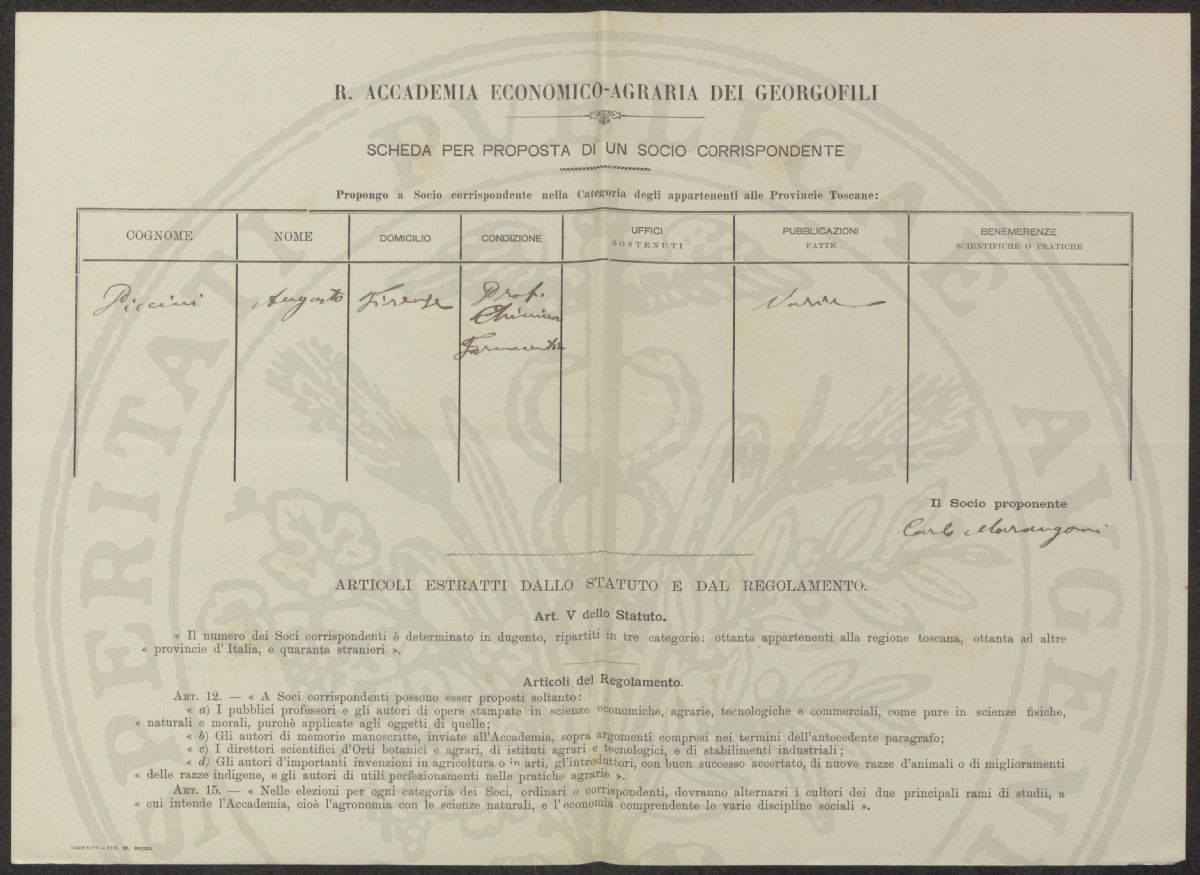 R. ACCADEMIA ECONOMICO-AGRARIA DEI GEORGOFILI
SCHEDA PER PROPOSTA DI UN SOCIO CORRISPONDENTE
Propongo a Socio corrispondente nella Categoria degli appartenenti alle Provincie Toscane:
COGNOME NOME DOMICILIO CONDIZIONE UFFICI SOSTENUTI PUBBLICAZIONI FATTE BENEMERENZE SCIENTIFICHE O PRATICHE
Piccini Augusto Firenze Prof. Varie
Chimica
Il Socio proponente
Carlo Marangoni
ARTICOLI ESTRATTI DALLO STATUTO E DAL REGOLAMENTO.
Art. V dello Statuto.
« Il numero dei Soci corrispondenti è determinato in dugento, ripartiti in tre categorie: ottanta appartenenti alla regione toscana, ottanta ad altre
« provincie d'Italia, e quaranta stranieri ».
Articoli del Regolamento.
ART. 12. — « A Soci corrispondenti possono esser proposti soltanto:
« a) I pubblici professori e gli autori di opere stampate in scienze economiche, agrarie, tecnologiche e commerciali, come pure in scienze fisiche,
« naturali e morali, purchè applicate agli oggetti di quelle;
« b) Gli autori di memorie manoscritte, inviate all'Accademia, sopra argomenti compresi nei termini dell'antecedente paragrafo;
« c) I direttori scientifici d'Orti botanici e agrari, di istituti agrari e tecnologici, e di stabilimenti industriali;
« d) Gli autori d'importanti invenzioni in agricoltura o in arti, gl'introduttori, con buon successo accertato, di nuove razze d'animali o di miglioramenti
« delle razze indigene, e gli autori di utili perfezionamenti nelle pratiche agrarie ».
ART. 15. — « Nelle elezioni per ogni categoria dei Soci, ordinari o corrispondenti, dovranno alternarsi i cultori dei due principali rami di studii, a
« cui intende l'Accademia, cioè l'agronomia con le scienze naturali, e l'economia comprendente le varie discipline sociali ».
FIRENZE - TIP. M. RICCI